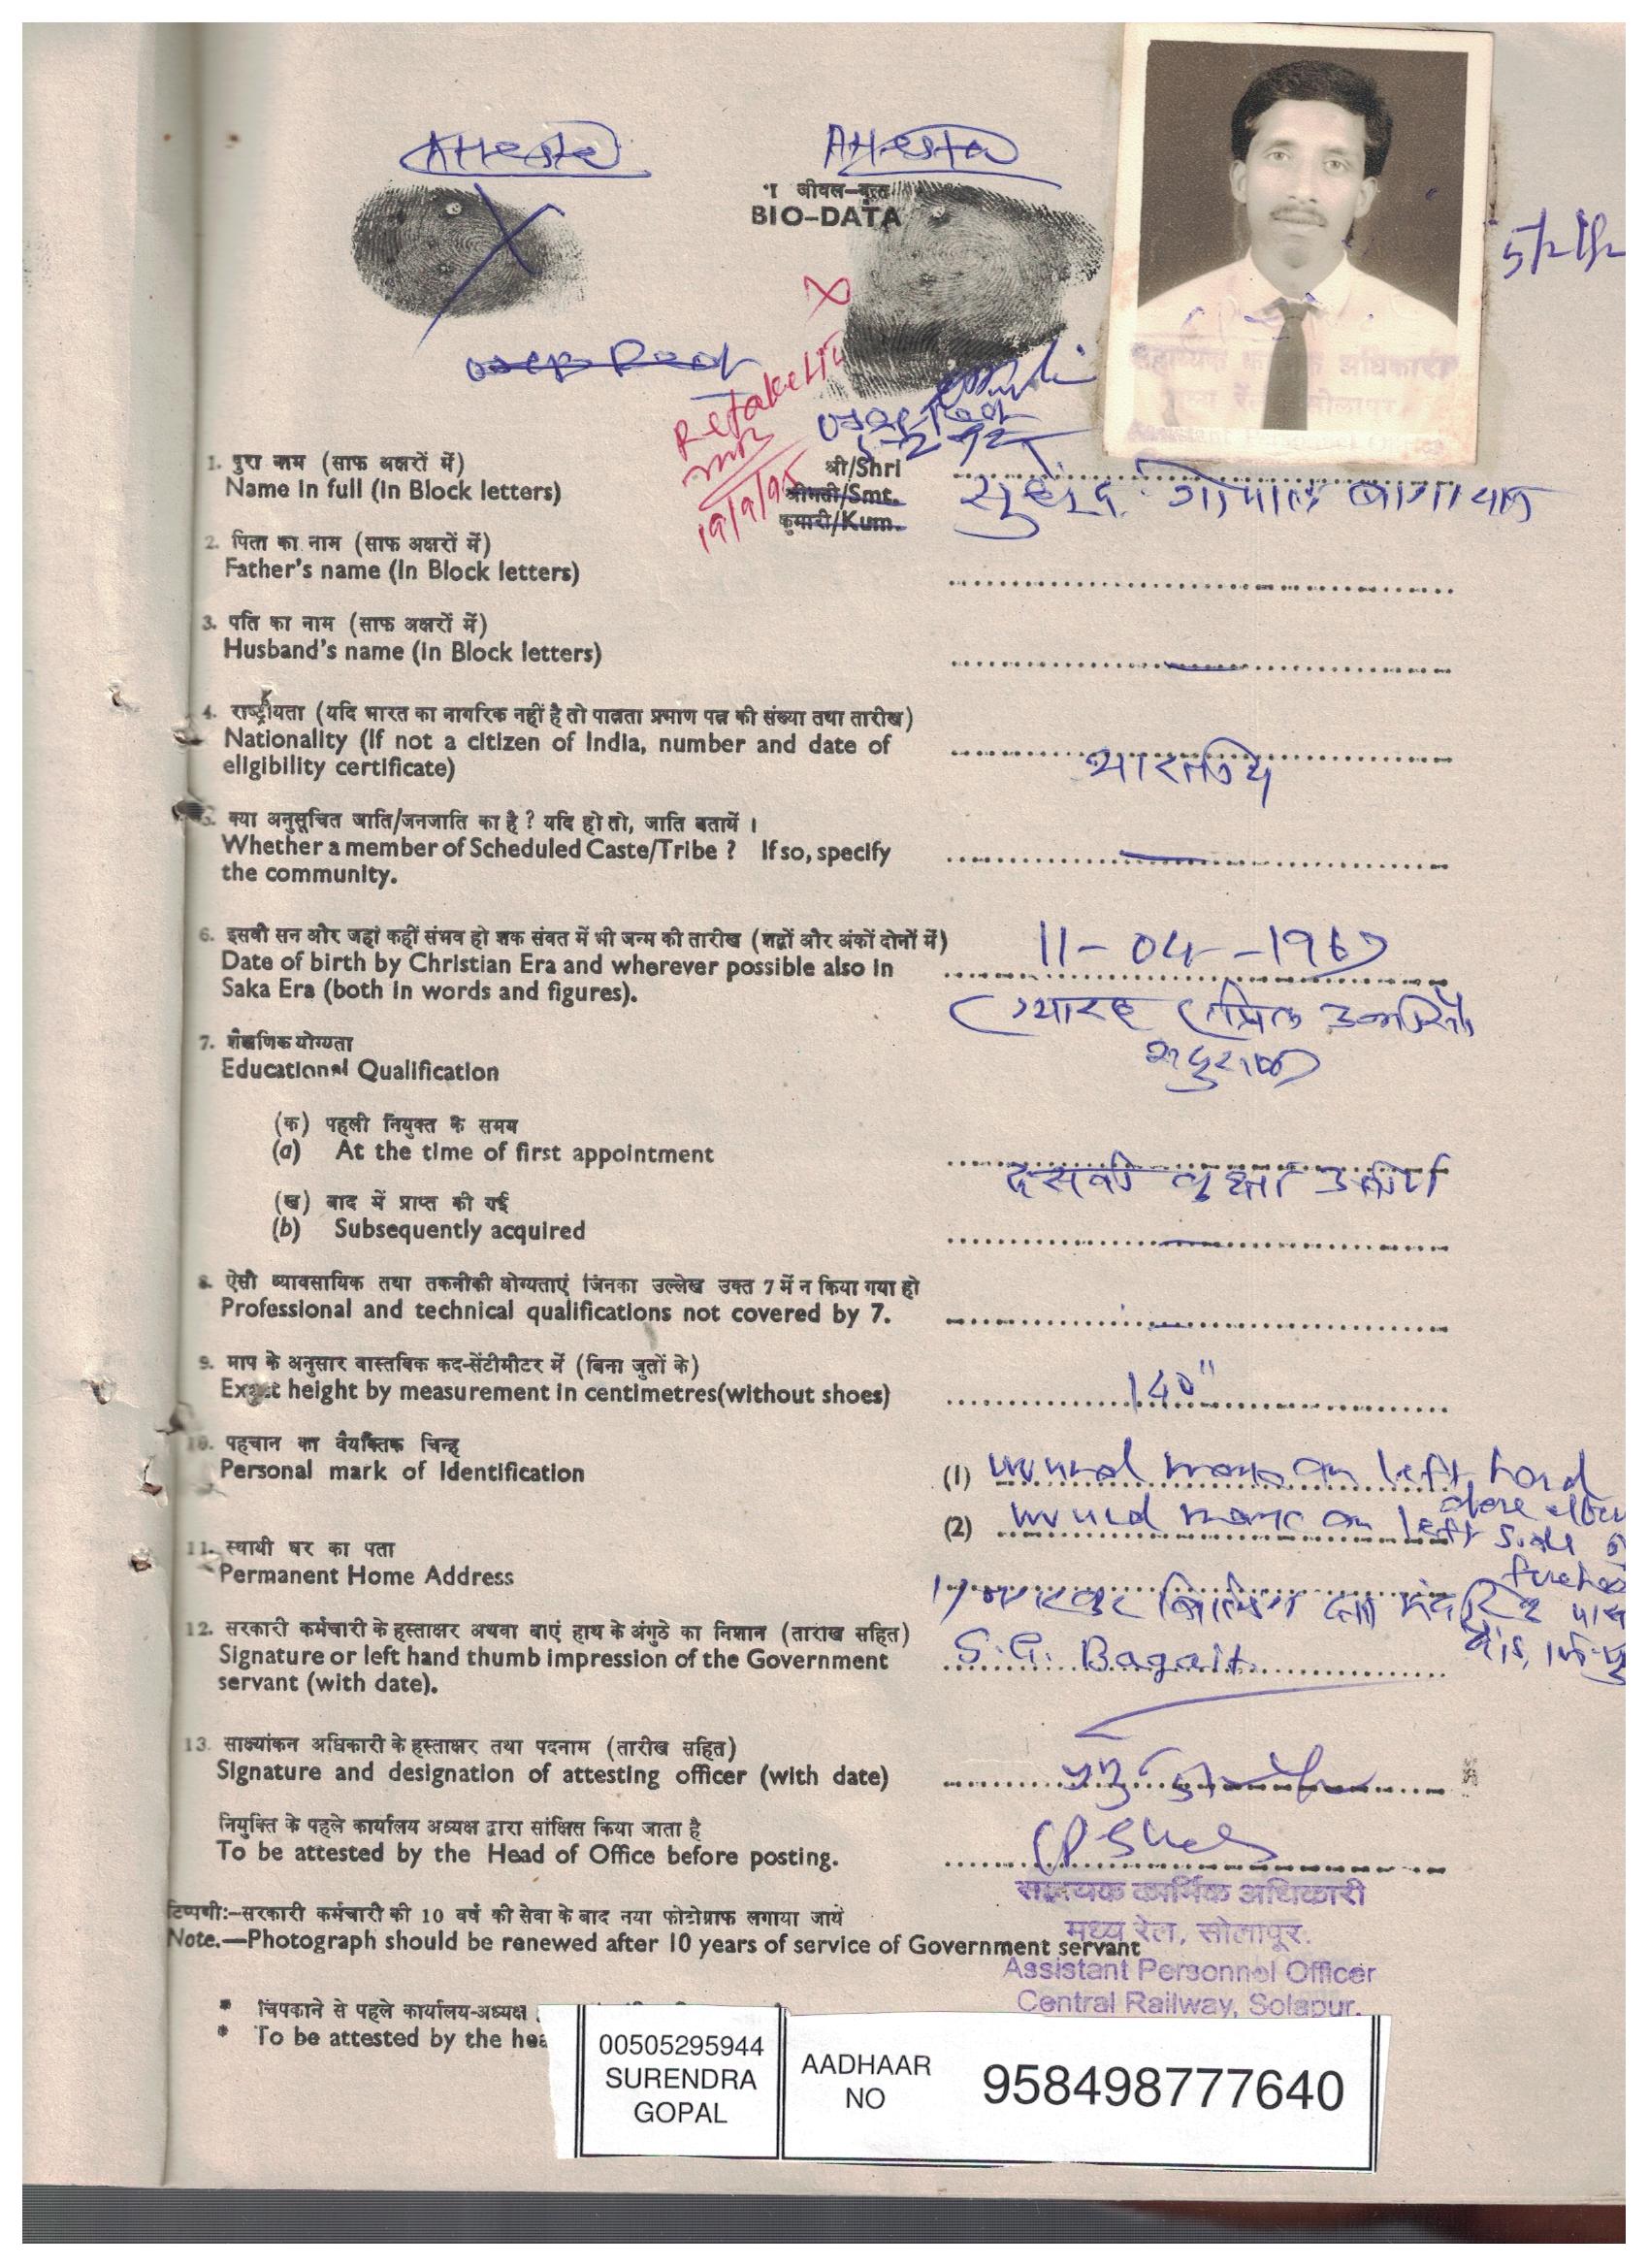 Atteste
Atteste
जीवल-वृत्त
BIO-DATA
Retake LTI
19/9/95
1. पुरा नाम (साफ अक्षरों में)
श्री/Shri
Name in full (in Block letters)
श्रीमती/Smt.
कुमारी/Kum.
गोपाल
2. पिता का नाम (साफ अक्षरों में)
Father's name (in Block letters)
3. पति का नाम (साफ अक्षरों में)
Husband's name (in Block letters)
4. राष्ट्रीयता (यदि भारत का नागरिक नहीं है तो पात्नता प्रमाण पत्न की संख्या तथा तारीख)
Nationality (If not a citizen of India, number and date of
eligibility certificate)
भारतीय
5. क्या अनुसूचित जाति/जनजाति का है ? यदि हो तो, जाति बतायें ।
Whether a member of Scheduled Caste/Tribe ? If so, specify
the community.
6. इसवी सन और जहां कहीं संभव हो शक संवत में भी जन्म की तारीख (शब्दों और अंकों दोनों में)
11-04-1967
Date of birth by Christian Era and wherever possible also in
Saka Era (both in words and figures).
ग्यारह एप्रिल
7. शैक्षणिक योग्यता
Educational Qualification
(क) पहली नियुक्त के समय
(a) At the time of first appointment
दसवी कक्षा
(ख) बाद में प्राप्त की गई
(b) Subsequently acquired
8. ऐसी व्यावसायिक तथा तकनीकी योग्यताएं जिनका उल्लेख उक्त 7 में न किया गया हो
Professional and technical qualifications not covered by 7.
9. माप के अनुसार वास्तविक कद-सेंटीमीटर में (बिना जुतों के)
Exact height by measurement in centimetres(without shoes)
140"
10. पहचान का वैयक्तिक चिन्ह
Personal mark of Identification
(1) on left hand
(2) on left side
11. स्थायी घर का पता
Permanent Home Address
12. सरकारी कर्मचारी के हस्ताक्षर अथवा बाएं हाथ के अंगुठे का निशान (ताराख सहित)
Signature or left hand thumb impression of the Government
servant (with date).
S. G. Bagait
13. साक्ष्यांकन अधिकारी के हस्ताक्षर तथा पदनाम (तारीख सहित)
Signature and designation of attesting officer (with date)
नियुक्ति के पहले कार्यालय अध्यक्ष द्वारा सांक्षित किया जाता है
To be attested by the Head of Office before posting.
सहायक कार्मिक अधिकारी
मध्य रेल, सोलापूर.
Assistant Personnel Officer
Central Railway, Solapur.
टिप्पणी:-सरकारी कर्मचारी की 10 वर्ष की सेवा के बाद नया फोटोग्राफ लगाया जाये
Note.—Photograph should be renewed after 10 years of service of Government servant
* चिपकाने से पहले कार्यालय-अध्यक्ष
* To be attested by the hea
00505295944
SURENDRA
GOPAL
AADHAAR
NO
958498777640